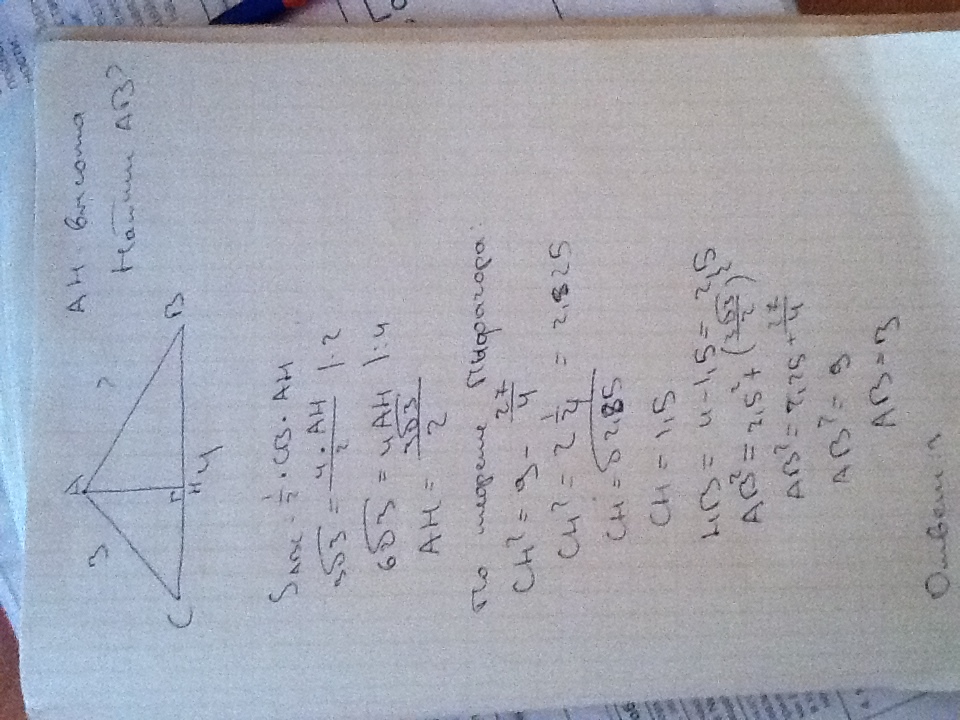 AH высота
Найти AB?
A
3
?
C
H
4
B
S ABC = 1/2 · CB · AH
3√3 = 4·AH/2 |·2
6√3 = 4AH |:4
AH = 3√3/2
По теореме Пифагора:
CH² = 9 - 27/4
CH² = 2 1/4 = 2,825
CH = √2,85
CH = 1,5
HB = 4-1,5 = 2,5
AB² = 2,5² + (3√3/2)²
AB² = 2,25 + 27/4
AB² = 9
AB = 3
Ответ: 3